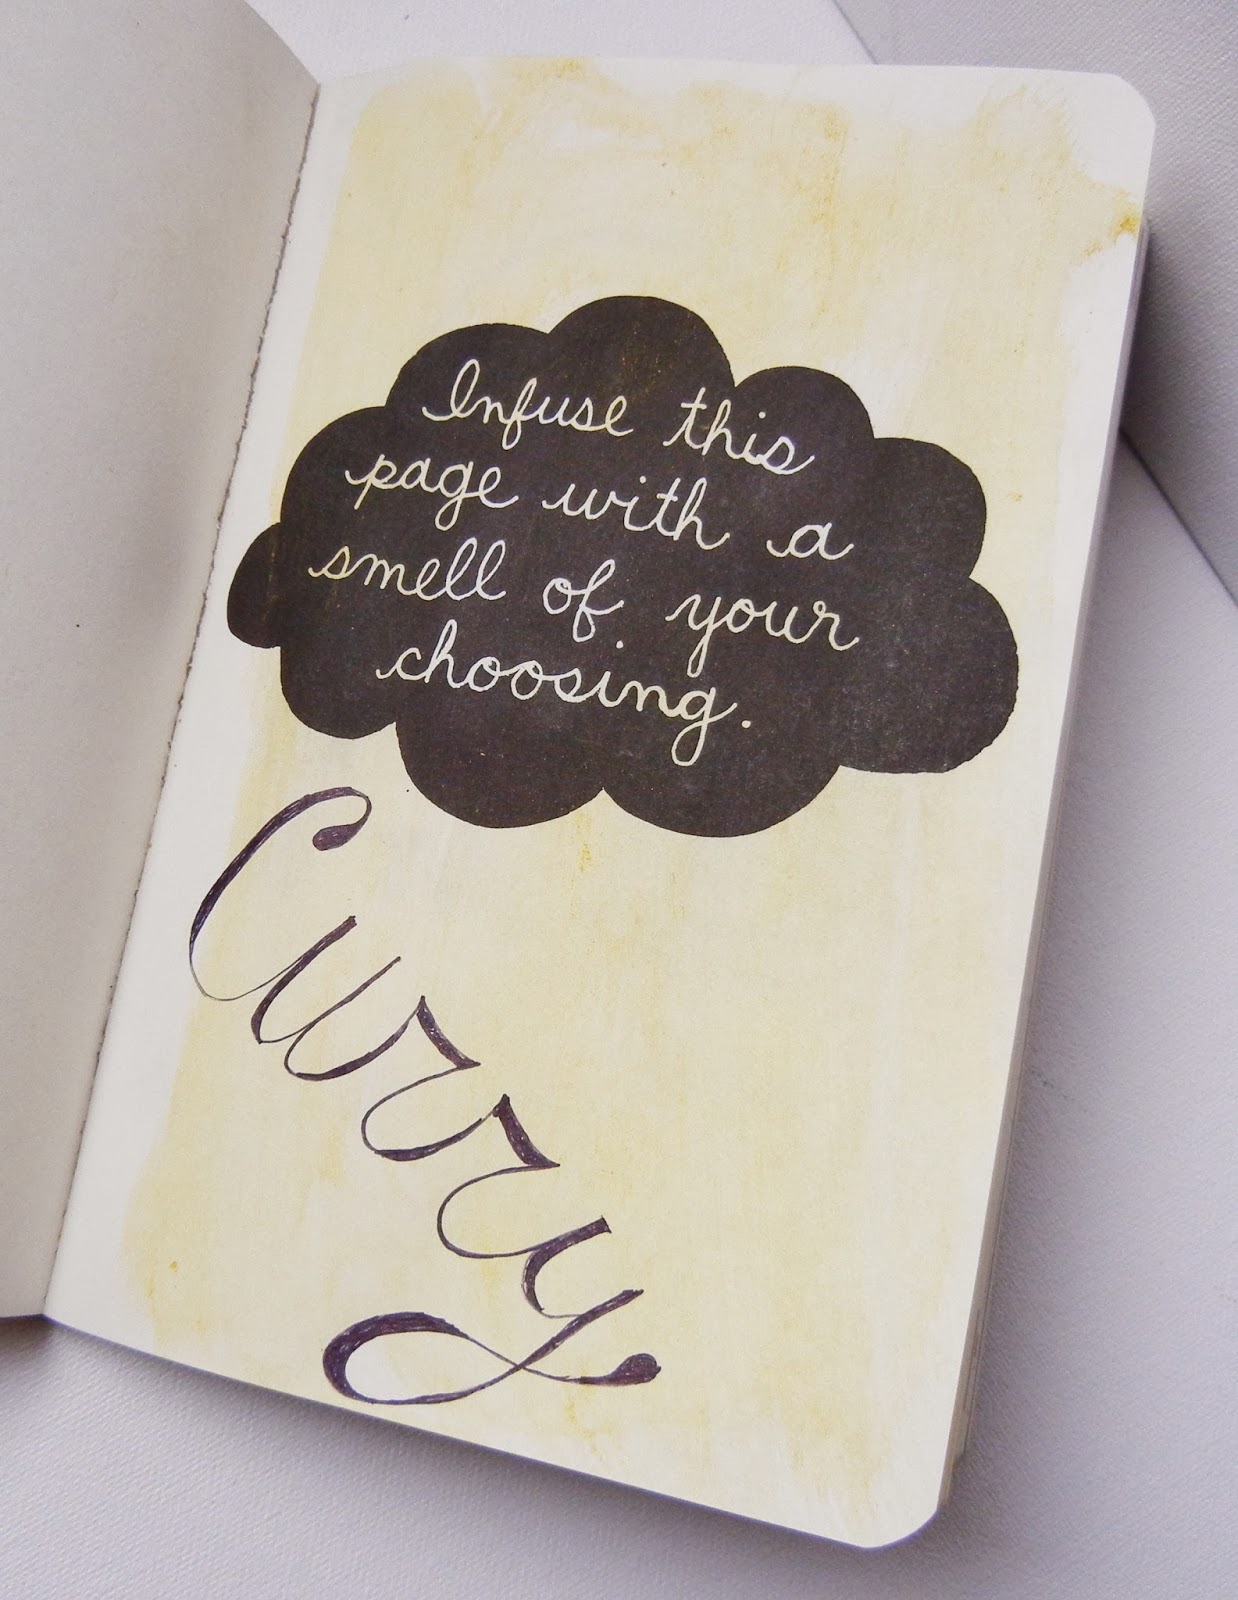 Infuse this
page with a
smell of your
choosing.
Curry